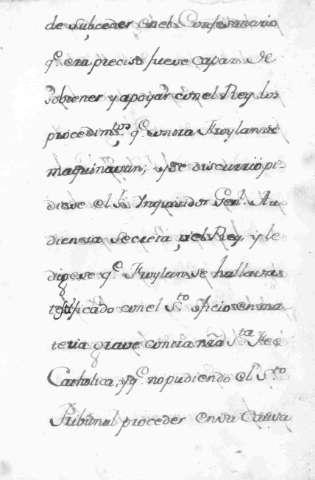 de subceder en el Confesonario
q.e era preciso fuese capaz de
sobtener y apoyar con el Rey los
procedim.tos q.e contra Froylan se
maquinavan; y se discurrió pi-
diese el S.r Inquisidor Gen.l Au
diencia secreta, al Rey, y le
dixese q.e Froylan se hallavas
testificado con el S.to oficio en ma
teria grave contra n̄ra S.ta Fee
Catholica, y q.e no pudiendo el S.to
Tribunal proceder en su causa